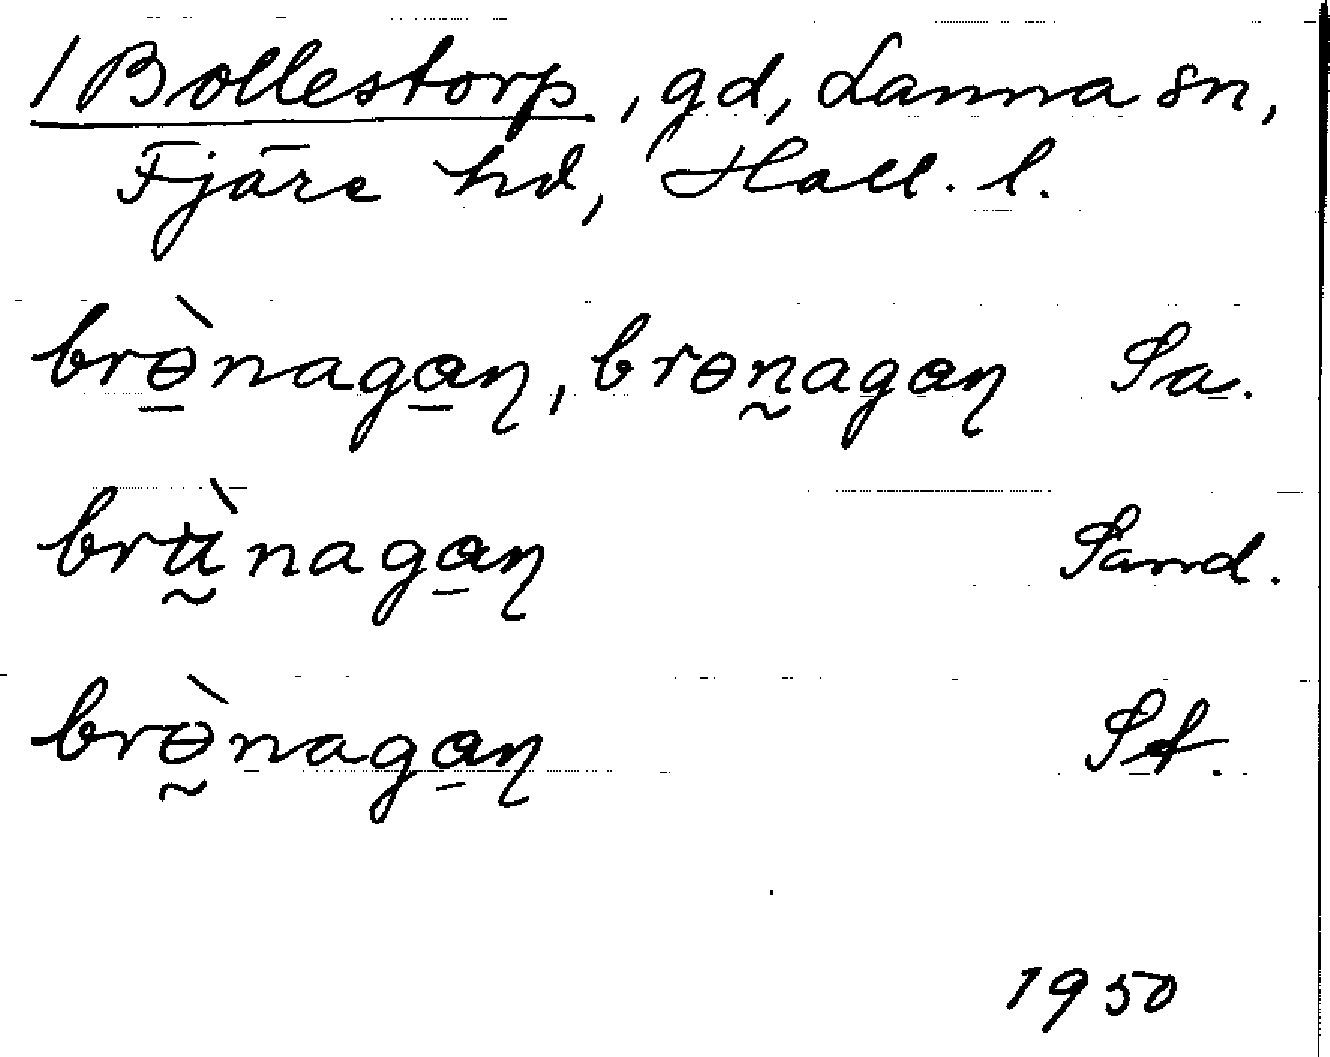 1 Bollestorp, gd, Lanna sn,
Fjäre hd, Hall. l.
brɵ̀nagaꞑ, brɵnagaꞑ Sa.
brʉ̀nagaꞑ Sand.
brɵ̀nagaꞑ St.
1950